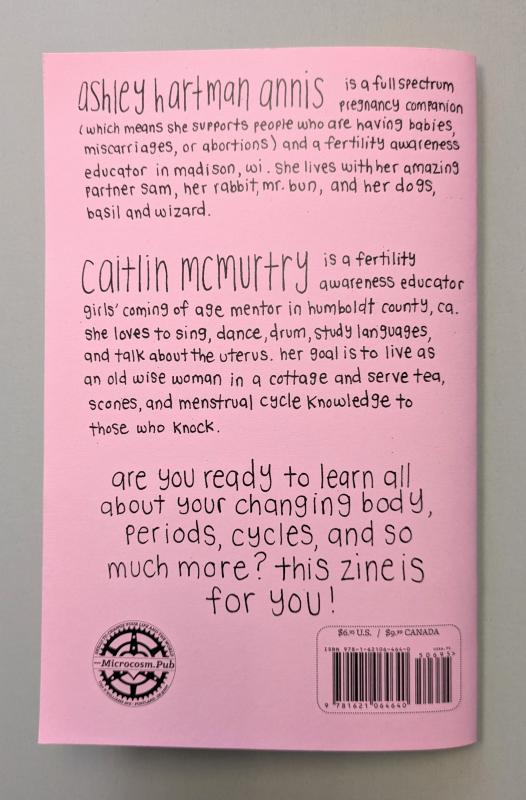 ashley hartman annis is a full spectrum
pregnancy companion
(which means she supports people who are having babies,
miscarriages, or abortions) and a fertility awareness
educator in madison, wi. she lives with her amazing
partner sam, her rabbit, mr. bun, and her dogs,
basil and wizard.
caitlin mcmurtry is a fertility
awareness educator
girls' coming of age mentor in humboldt county, ca.
she loves to sing, dance, drum, study languages,
and talk about the uterus. her goal is to live as
an old wise woman in a cottage and serve tea,
scones, and menstrual cycle knowledge to
those who knock.
are you ready to learn all
about your changing body,
periods, cycles, and so
much more? this zine is
for you!
Microcosm.Pub
$6.95 U.S. / $9.99 CANADA
ISBN 978-1-62106-464-0
50695>
9 781621 064640